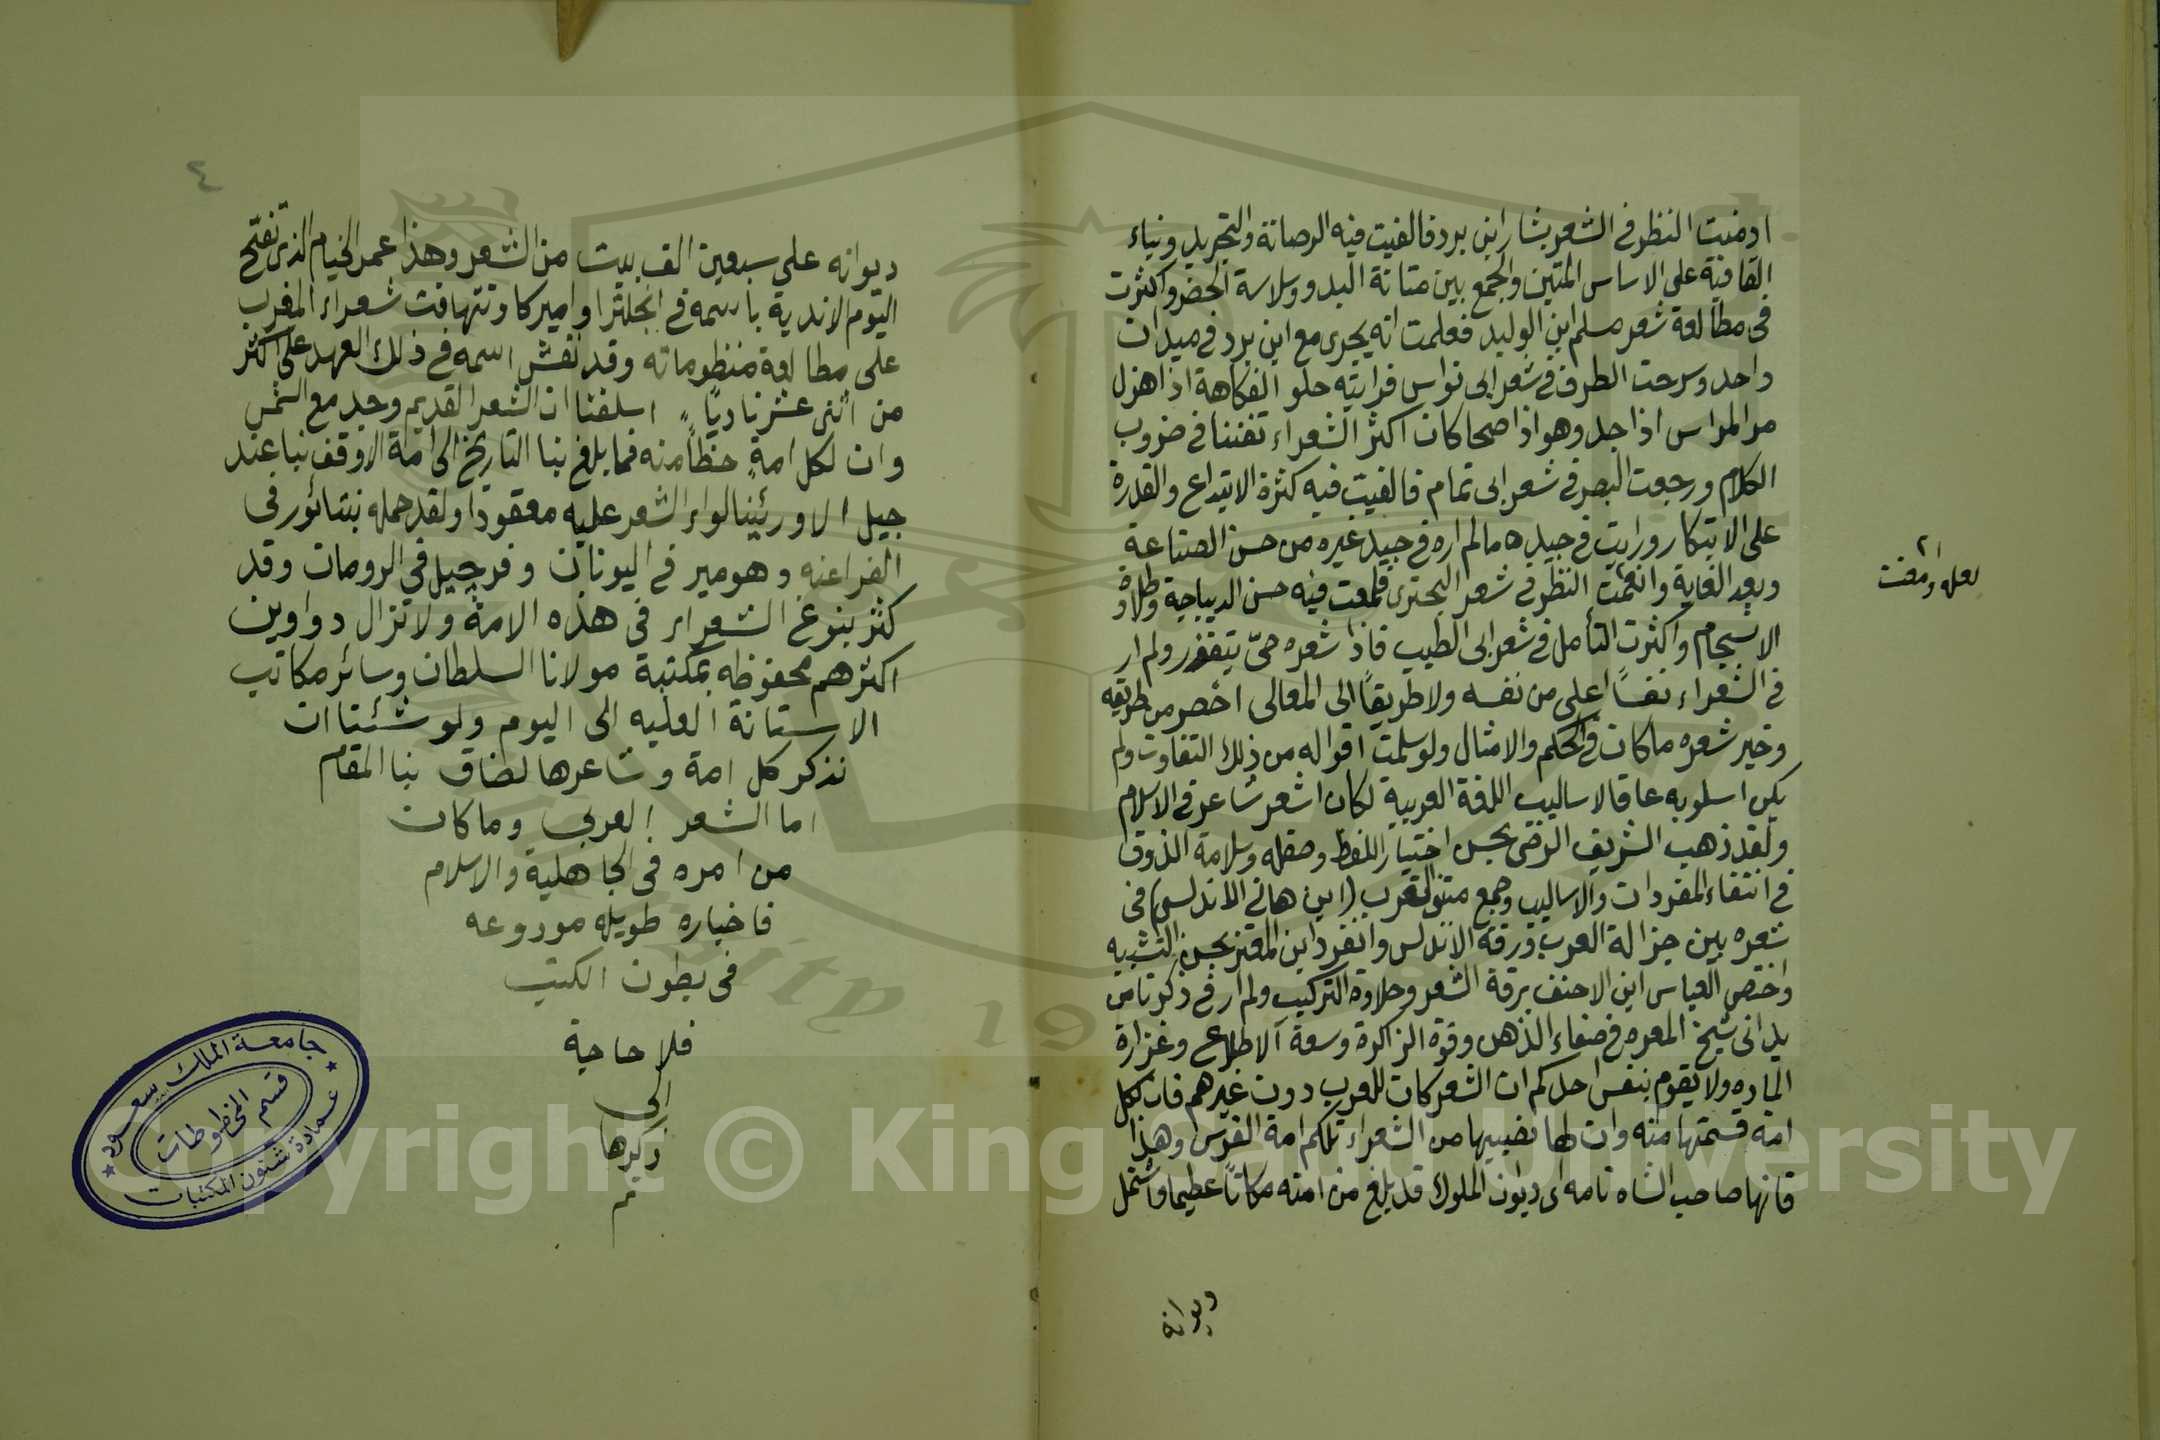 ادمنت النظر في الشعر بشار ابن برد فالفيت فيه الرصانة والتجريد وبناء
القافية على الاساس المتين والجمع بين متانة البدو وسلاسة الحضر واكثرت
في مطالعة شعر مسلم ابن الوليد فعلمت انه يجرى مع ابن برد في ميدان
واحد وسرحت الطرف في شعر ابى نواس فرايته حلو الفكاهة اذا هزل
مر المراس اذا جد وهو اذا صحا كان اكثر الشعراء تفننا في ضروب
الكلام ورجعت البصر في شعر ابى تمام فالفيت فيه كثرة الابتداع والقدرة
على الابتكار ورايت في جيدها مالم اره في جيد غيره من حسن الصناعة
وبعد الغاية وانعمت النظر في شعر البحترى فلمعت فيه حسن الديباجة وطلاوة
الانسجام واكثرت التأمل في شعر ابى الطيب فاذا شعره حىّ يتقفزر ولم ار
في الشعراء نفسًا اعلى من نفسه ولا طريقًا الى المعالى اخصر من طريقه
وخير شعره ما كان في الحكم والامثال ولو سلمت اقواله من ذلك التفاوت ولم
يكن اسلوبه عاقا لاساليب اللغة العربية لكان اشعر شاعر في الاسلام
ولقد ذهب الشريف الرضى بحسن اختيار اللفظ وصقله وسلامة الذوق
في انتقاء المفردات والاساليب وجمع متنبي الغرب (ابن هانى الاندلسى) في
شعره بين جزالة العرب ورقة الاندلس وانفرد ابن المعتز بحسن التشبيه
واختص العباس ابن الاحنف برقة الشعر وحلاوة التركيب ولم ار في ذكرنا من
يدانى شيخ المعره في صفاء الذهن وقوة الزاكرة وسعة الاطلاع وغزارة
الماده ولا يقوم بنفس احدكم ان الشعر كان للعرب دون غيرهم فان لكل
امه قسمتها منه وان لها نصيبها من الشعراء تلكم امة الفرس وهذا
قانها صاحب الشاه نامه اى ديوان الملوك قد بلغ من امته مكانًا عظيما واشتمل
ديوانه
لعله ومعنت
٤
ديوانه على سبعين الف بيت من الشعر وهذا عمر الخيام الذى تفتح
اليوم الاندية باسمه في انجلترا واميركا وتتهافت شعراء المغرب
على مطالعة منظوماته وقد نقش اسمه في ذلك العهد على اكثر
من اثنى عشر ناديًا اسلفنا ان الشعر القديم وجد مع الشمس
وان لكل امةٍ حظاً منه فما بلغ بنا التاريخ الى امة الا وقف بنا عند
جيل الا ورئينا لواء الشعر عليه معقودا ولقد حمله بنتائور في
الفراعنه وهومير في اليونان وفرجيل في الرومان وقد
كثر بنوغ الشعراء في هذه الامة ولا تزال دواوين
اكثرهم محفوظه بمكتبة مولانا السلطان وسائر مكاتب
الاستانة العليه الى اليوم ولو شئنا ان
نذكر كل امة وشاعرها لضاق بنا المقام
اما الشعر العربي وما كان
من امره في الجاهلية والاسلام
فاخباره طويله مودوعه
في بطون الكتب
فلا حاجة
الى
ذكرها
تم
جامعة الملك سعود
قسم المخطوطات
عمادة شئون المكتبات
Copyright © King Saud University